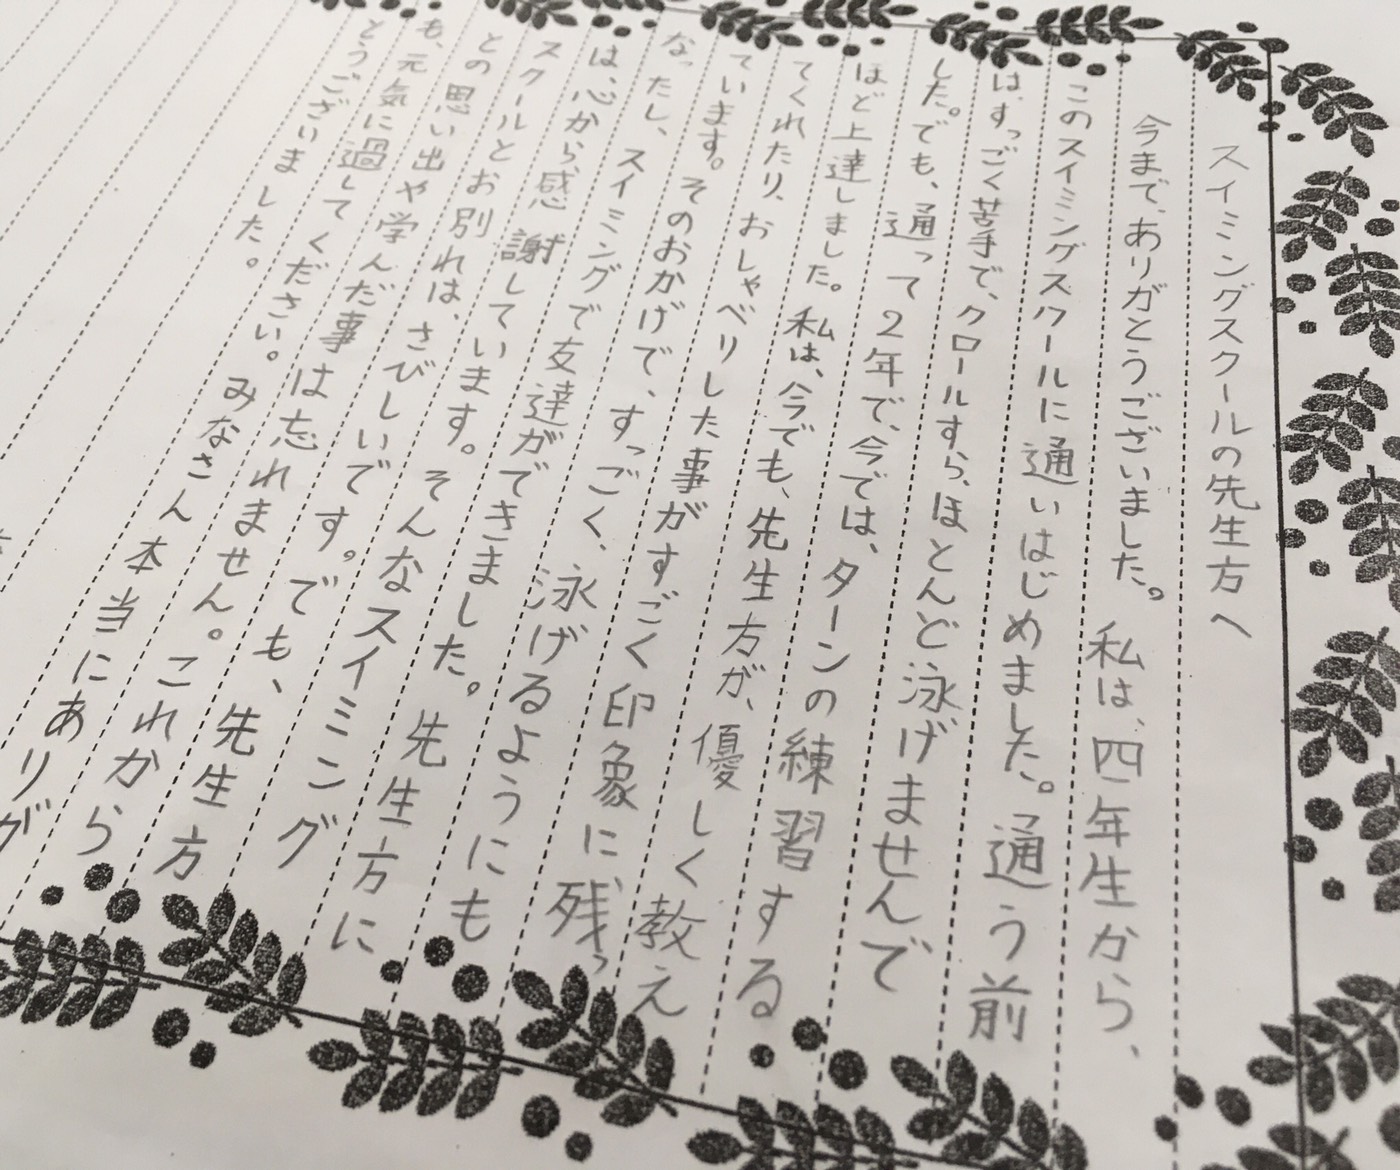 スイミングスクールの先生方へ
今まで、ありがとうございました。私は、四年生から、
このスイミングスクールに通いはじめました。通う前
は、すっごく苦手で、クロールすら、ほとんど泳げませんで
した。でも、通って2年で、今では、ターンの練習する
ほど上達しました。私は、今でも、先生方が、優しく教え
てくれたり、おしゃべりした事がすごく印象に、残っ
ています。そのおかげで、すっごく、泳げるようにも
なったし、スイミングで友達ができました。先生方に
は、心から感謝しています。そんなスイミング
スクールとお別れは、さびしいです。でも、先生方
との思い出や学んだ事は忘れません。これから
も、元気に過してください。みなさん本当にありが
とうございました。